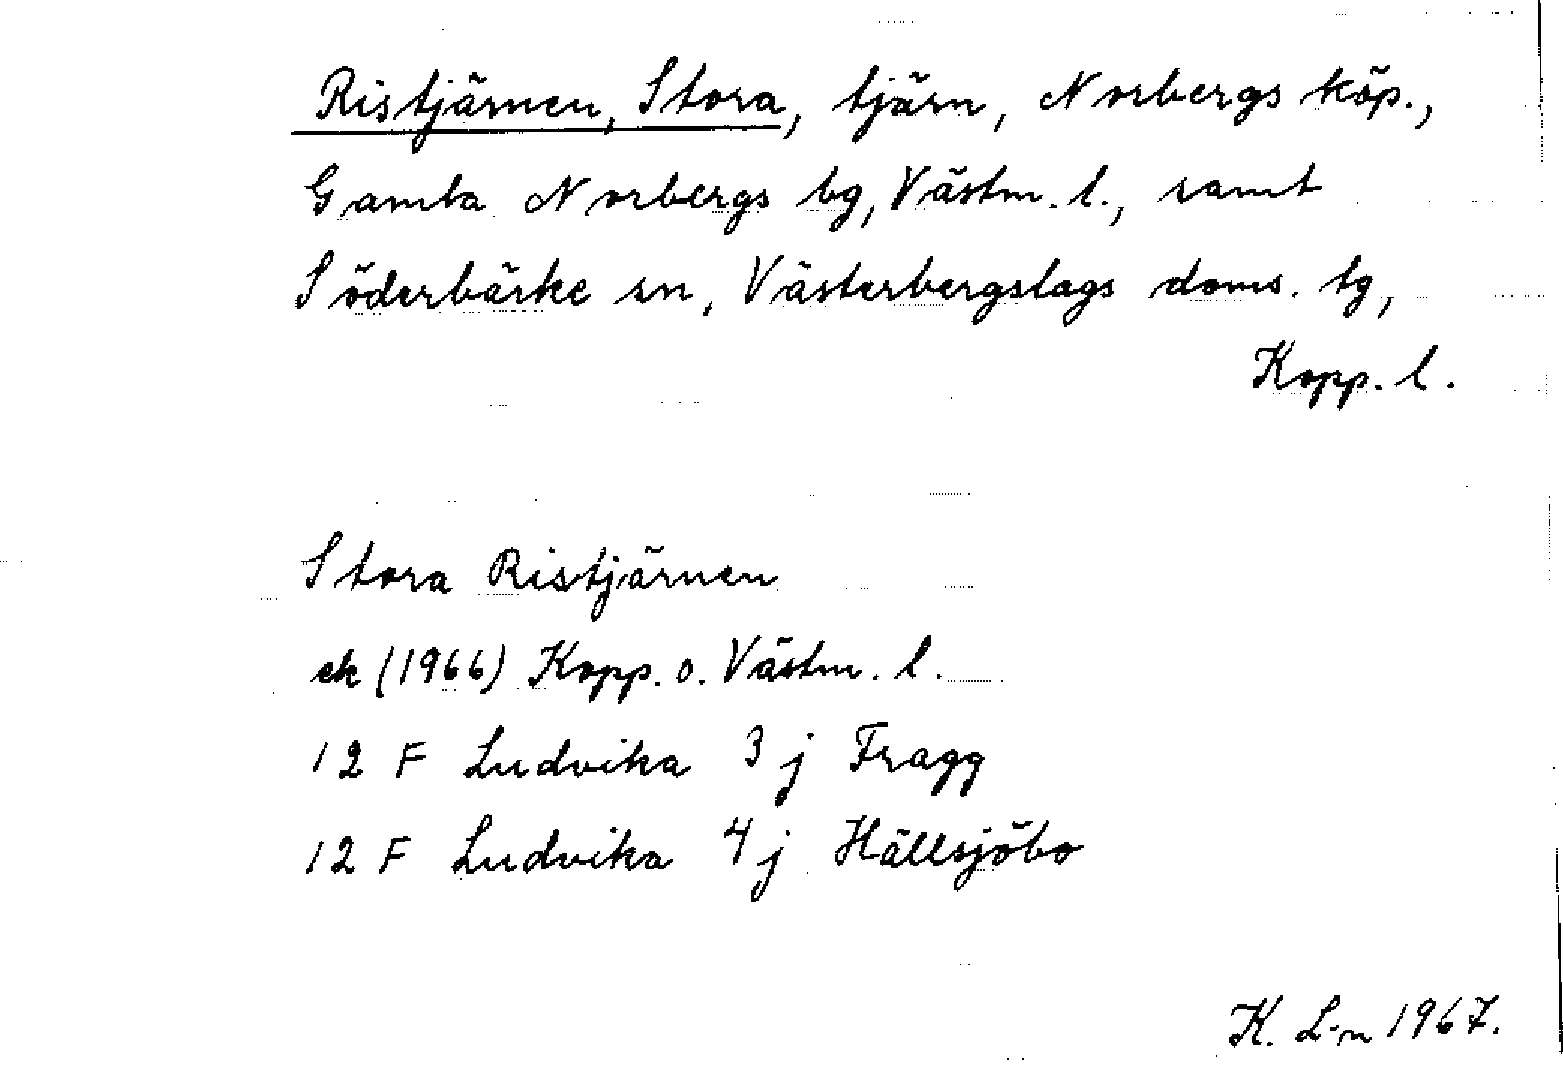 Ristjärnen, Stora, tjärn, Norbergs köp.,
Gamla Norbergs bg, Västm. l., samt
Söderbärke sn, Västerbergslags doms. tg,
Kopp. l.
Stora Ristjärnen
ek (1966) Kopp. o. Västm. l.
12 F Ludvika 3 j Fragg
12 F Ludvika 4 j Hällsjöbo
K. L-n 1967.